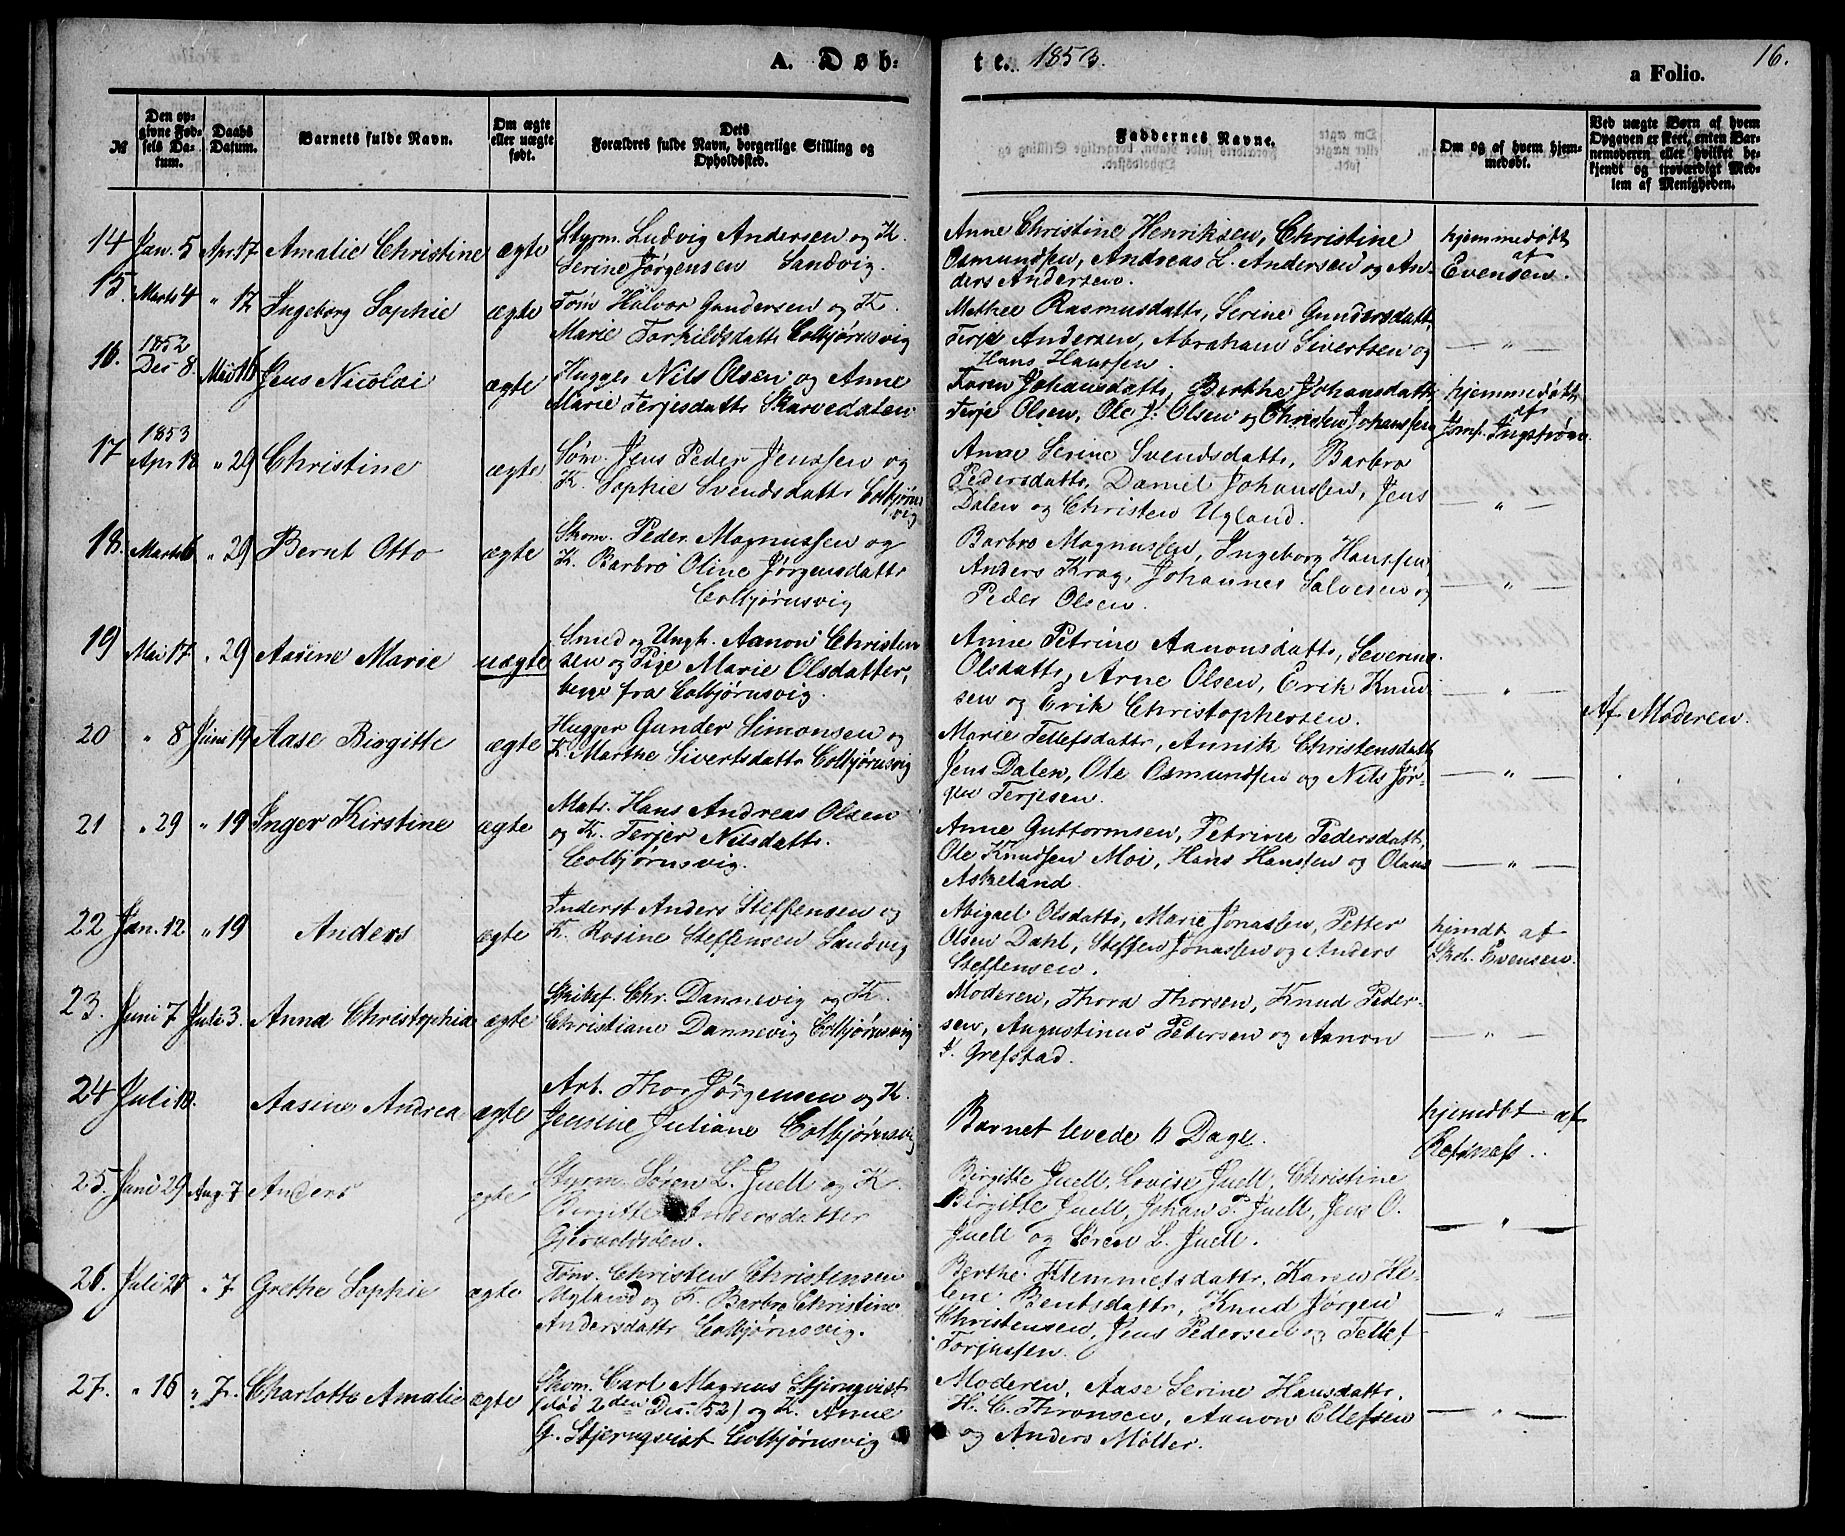 A. Døb-
te. 1853.
a Folio.
16.
№
Den op-
givne Fød-
sels Da-
tum.
Daabs
Datum.
Barnets fulde Navn.
Om ægte
eller uægte
født.
Dets
Forældres fulde Navn, borgerlige Stilling og
Opholdssted.
Faddernes Navne.
Om og af hvem hjem-
medøbt.
Ved uægte Børn af hvem
Opgaven er skeet, enten Bar-
nemoderen eller hvilket be-
kjendt og troværdigt Med-
lem af Menigheden.
14 Jan. 5 Apr. 17 Amalie Christine ægte
Styrm. Ludvig Andersen og K.
Serine Jørgensen Sandvig.
Anne Christine Henriksen, Christine
Osmundsen, Andreas L. Andersen og An-
ders Andersen.
hjemmedøbt
af
Evensen.
15. Marts 4 " 17 Ingeborg Sophie ægte
Tøm. Halvor Gundersen og K.
Marie Torkildsdattr Colbjørnsvig
Mathee Rasmusdattr, Serine Gundersdattr
Terje Andersen, Abraham Sivertsen og
Hans Hanssen.
— " —
16. 1852
Des 8. Mai 16 Jens Nicolai ægte
Hugger Nils Olsen og Anne
Marie Terjesdattr Skarvedalen
Karen Johansdattr, Berthe Johansdattr
Terje Olsen, Ole J. Olsen og Christen Johanssen
hjemmedøbt
af
Jomf. Ingstrøm.
17 1853
Apr 18 " 29 Christine ægte
Tøm. Jens Peder Jenssen og
K. Sophie Svendsdattr Colbjørns
vig
Anne Serine Svendsdattr, Barbro
Pedersdattr, Daniel Johanssen, Jens
Dalen og Christen Ugland.
— " —
18. Marts 6 " 29 Bernt Otto ægte
Skom. Peder Magnussen og
K. Barbro Oline Jørgensdattr
Colbjørnsvig
Barbro Magnussen, Ingeborg Hanssen,
Anders Krag, Johannes Salvesen og
Peder Olsen.
— " —
19 Mai 17 " 29 Aasine Marie uægte
Smed og Ungk. Aanon Christen
sen og Pige Marie Olsdatter,
begge fra Colbjørnsvig.
Anne Petrine Aanonsdattr, Severine
Olsdattr, Arne Olsen, Erik Knud
sen og Erik Christophersen.
— " —
Af Moderen.
20 " 8 Juni 19 Aase Birgitte ægte
Hugger Gunder Simonsen og
K. Marthe Sivertsdattr Colbjørnsvig
Marie Tellefsdattr, Annik Christensdattr
Jens Dalen, Ole Osmundsen og Nils Jør-
gen Terjesen.
— " —
21 " 29 " 19 Inger Kirstine ægte
Matr. Hans Andreas Olsen
og K. Terjer Nilsdattr.
Colbjørnsvig.
Anne Guttormsen, Petrine Pedersdattr,
Ole Knudssen Moi, Hans Hanssen og Olaus
Askeland.
— " —
22 Jan. 12 " 19 Anders ægte
Inderst Anders Steffensen og
K. Rosine Steffensen Sandvig
Abigael Olsdattr, Marie Jonassen, Petter
Olsen Dahl, Steffen Jonassen og Anders
Steffensen.
hjemdt af
Skol. Evensen.
23. Juni 7 Juli 3. Anna Christophia ægte
Skibsf. Chr. Dannevig og K.
Christiane Dannevig Colbjørnsvig
Moderen, Thora Thorsen, Knud Peder-
sen, Augustinus Pedersen og Aanon
J. Grefstad.
— " —
24 Juli 18. Aasine Andrea ægte
Arb. Thor Jørgensen og K.
Jensine Juliane Colbjørnsvig
Barnet levede 6 Dage.
hjemdbt af
Refsnæss.
25. Juni 29 Aug. 7 Anders ægte
Styrm. Søren L. Juell og K.
Birgitte Andersdatter
Gjervoldsøen.
Birgitte Juell, Lovise Juell, Christine
Birgitte Juell, Johan P. Juell, Jens O.
Juell og Søren L. Juell.
— " —
26. Juli 20 " 7 Grethe Sophie ægte
Tøm. Christen Christensen
Ugland og K. Barbro Christine
Andersdattr Colbjørnsvig.
Berthe Klemmetsdattr, Karen He-
lene Bentsdattr, Knud Jørgen
Christensen, Jens Pedersen og Tellef
Torjussen.
— " —
27. " 16 " 7. Charlotte Amalie ægte
Skom. Carl Magnus Stjernqvist
(død 2den Des. 52) og K. Anne
G. Stjernqvist Colbjørnsvig
Moderen, Aase Serine Hansdattr,
H. C. Thronsen, Aanon Ellefsen
og Anders Møller.
— " —